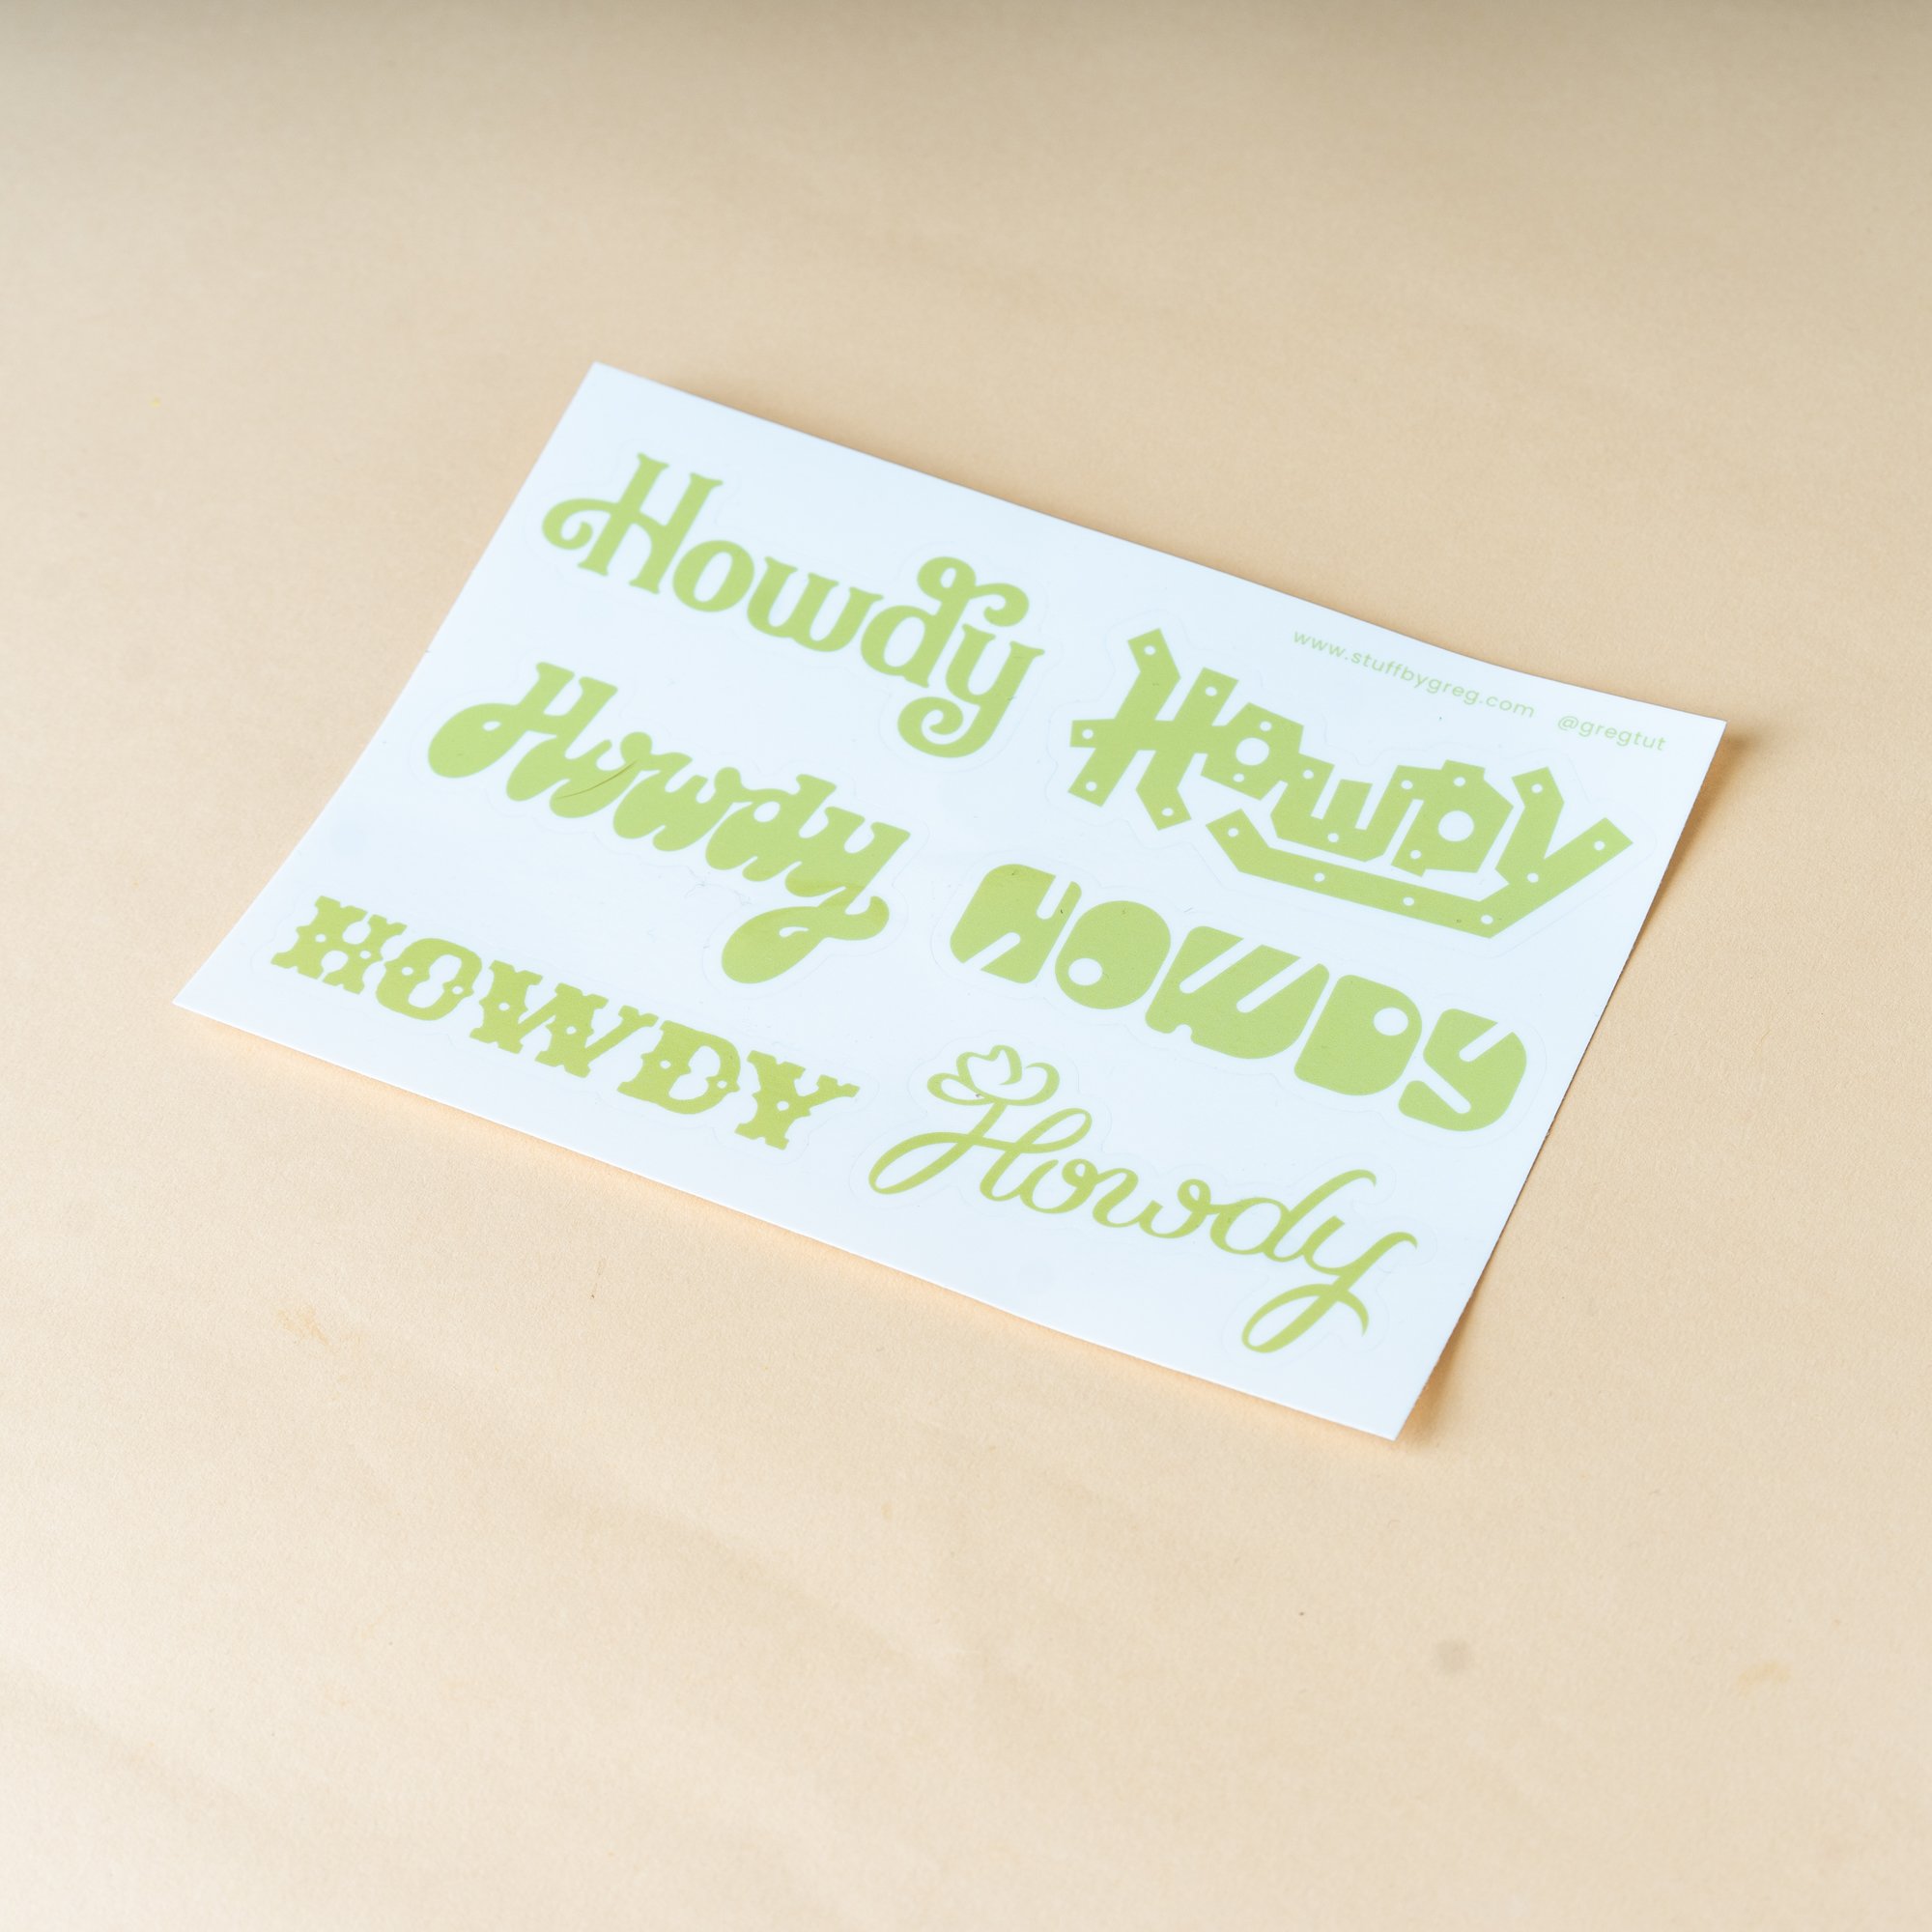 www.stuffbygreg.com @gregtut
Howdy
HOWDY
Howdy
HOWDY
HOWDY
Howdy